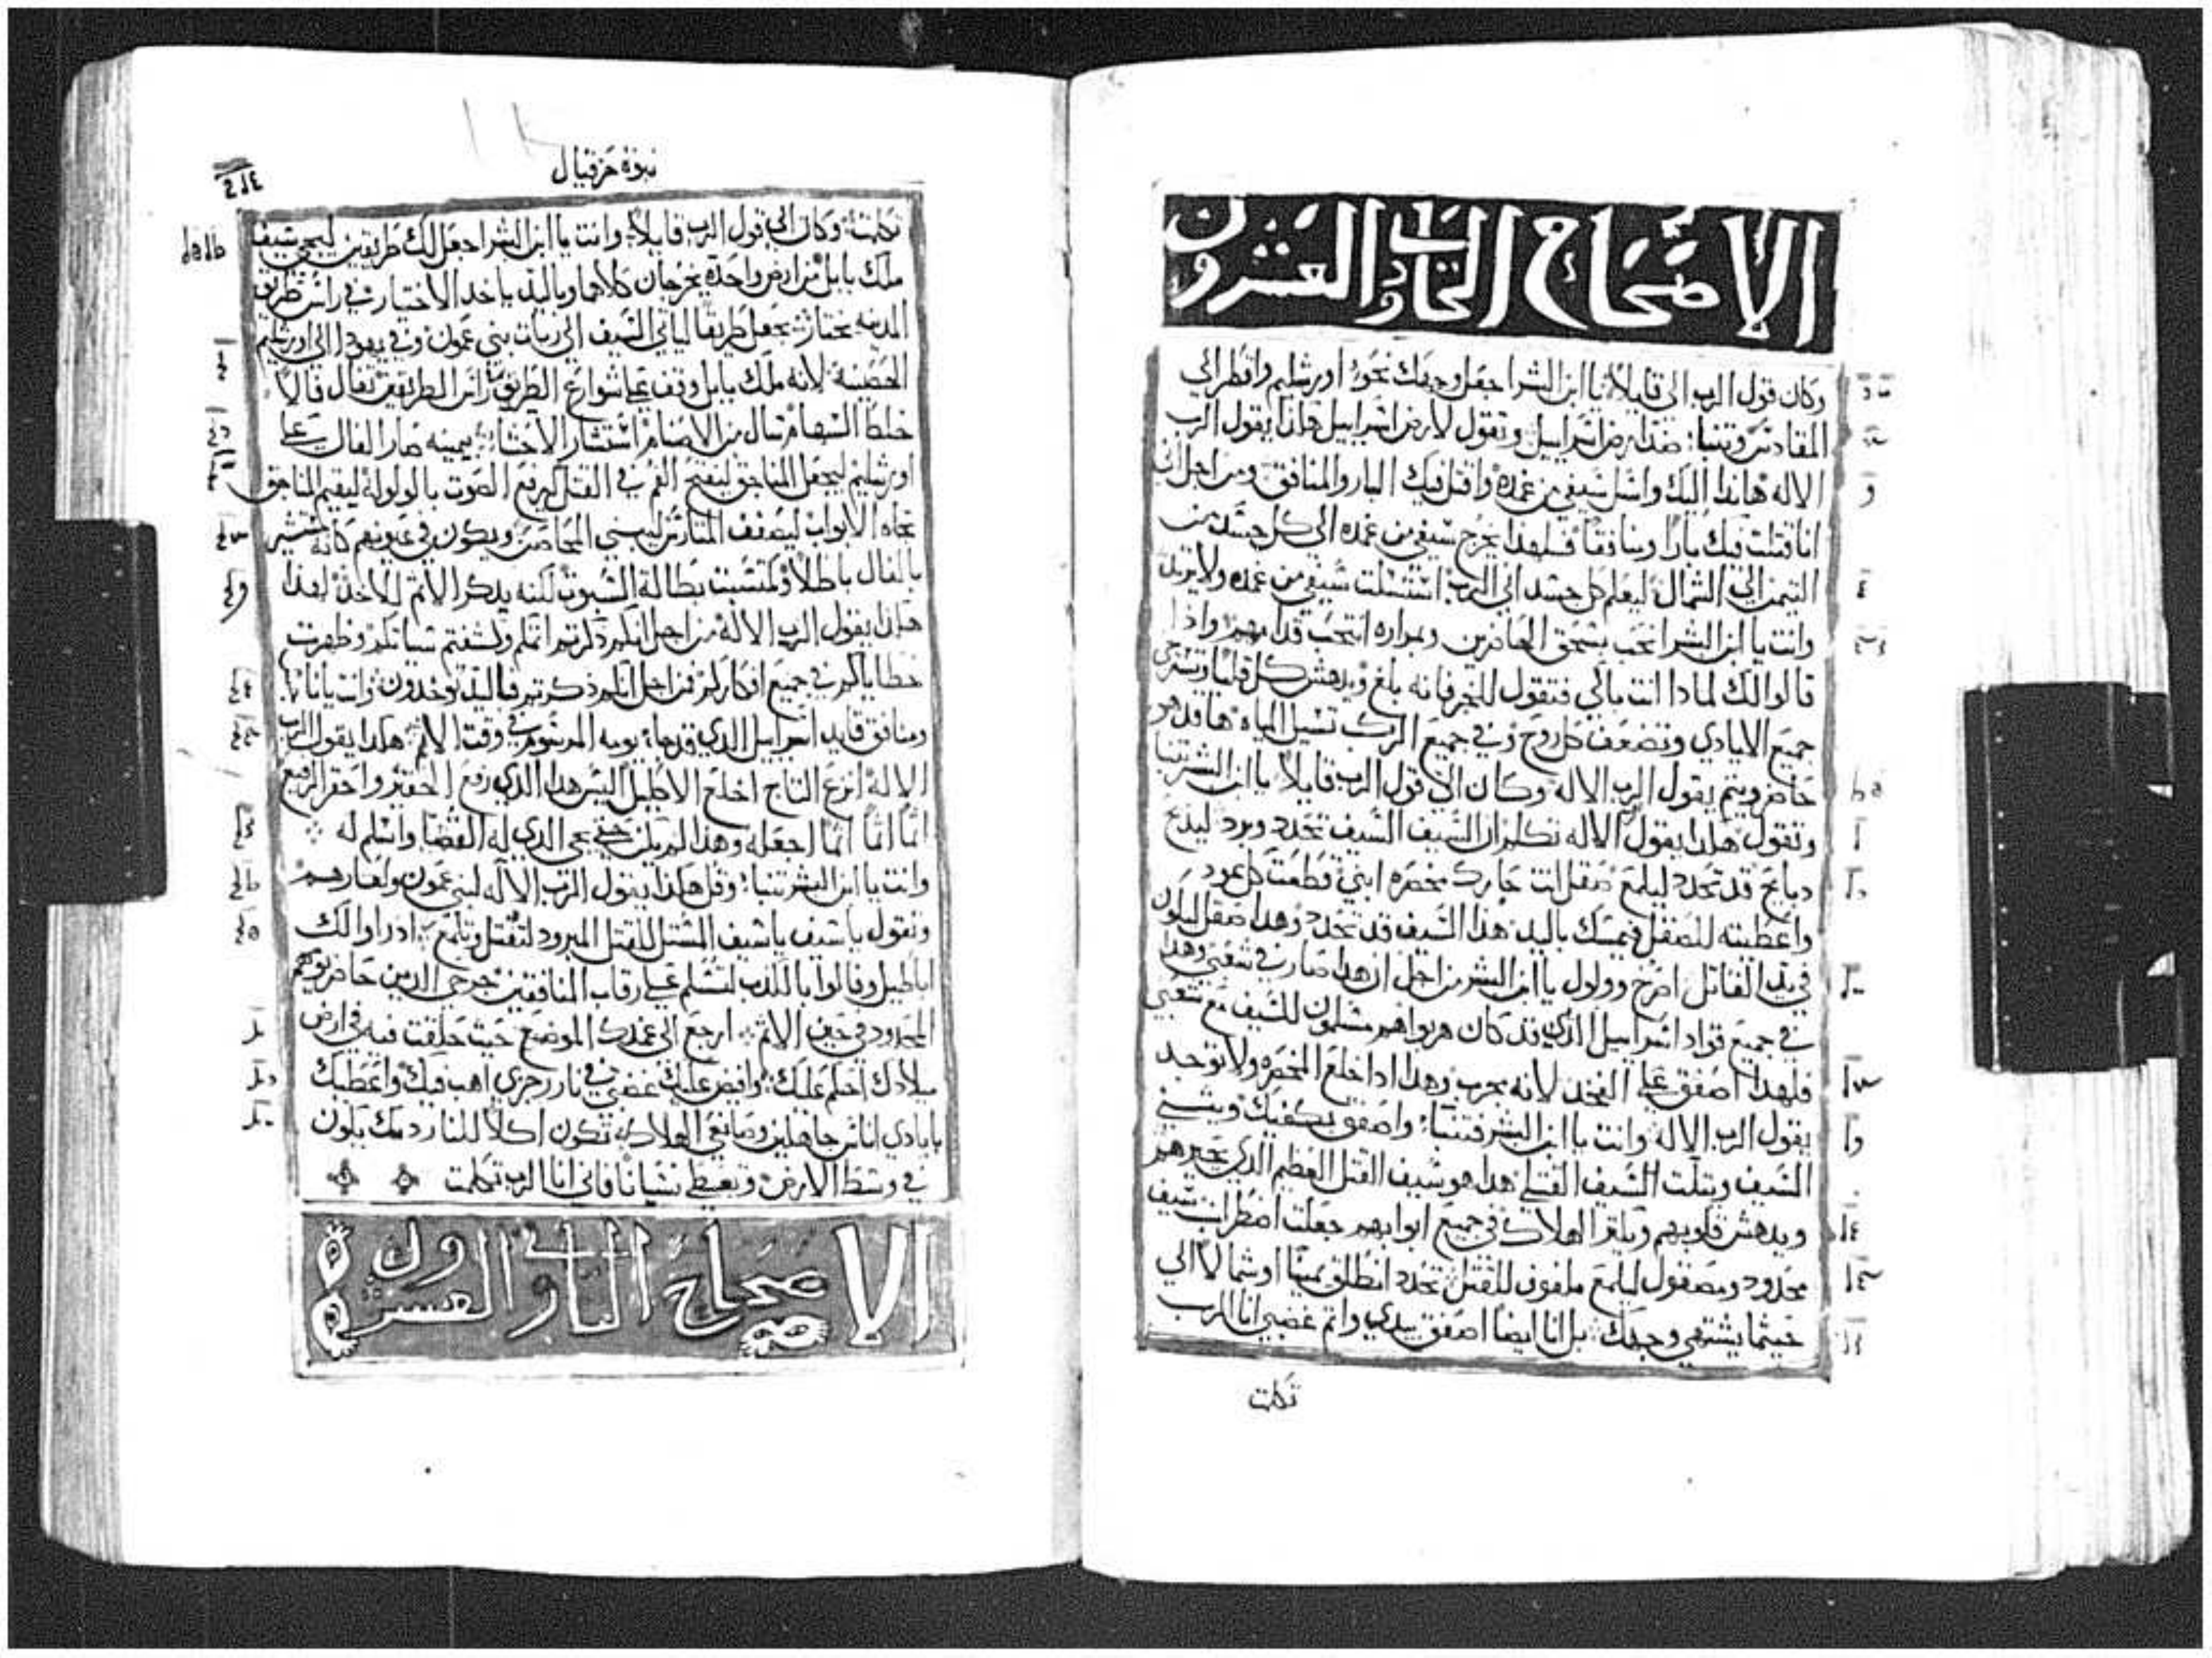 الاصحاح الحادي والعشرون
وكان قول الرب الي قايلا يا ابن البشر اجعل وجهك نحو اورشليم واقطر الي
المقادس وتنبا ضد ارض اسراييل وتقول لارض اسراييل هكذا يقول الرب
الاله هانذا اليك واسل سيفي من غمده واقتل فيك البار والمنافق ومن اجل اني
انا قتلت فيك بارا ومنافقا فلهذا يخرج سيفي من غمده الي كل جسد من
التيمن الي الشمال ليعلم كل جسد اني الرب استسلت سيفي من غمده ولا
وانت يا ابن البشر انتحب بسحق الخاصرين وبمراره انتحب قدامهم واذا
قالوا لك لماذا انت باكي فتقول للخبر فانه بلغ ويدهش كل قلب
جميع الايادي وتضعف كل روح وفي جميع الركب تسيل المياه ها قد هو
حاضر ويتم يقول الرب الاله وكان الي قول الرب قايلا يا ابن البشر تنبا
وتقول هكذا يقول الاله تكلم ان السيف السيف تحدد وبرد ليدبح
دبايح قد تحدد ليلمع صقل انت محصره ابني قطعت كل عود
واعطيته للصقل فيمسك باليد هذا السيف قد تحدد وهذا صقل ليكون
في يد القاتل اصرخ وولول يا ابن البشر من اجل ان هذا صار في شعبي وهذا
في جميع قواد اسراييل الذي قد كان هربوا هم مسلمون للسيف مع شعبي
فلهذا اصفق علي الفخد لانه مجرب وهذا اذا اخلع المخصره ولا توجد
يقول الرب الاله وانت يا ابن البشر فتنبا واصفق بكفيك ويثني
السيف ويثلث السيف القتلي هذا هو سيف القتل العظيم الذي يحيرهم
ويدهش قلوبهم ويكثر الهلاك في جميع ابوابهم جعلت اضطراب سيف
محدود ومصقول ليلمع ملفوف للقتل تحدد انطلق يمينا او شمالا الي
حيثما يشتهي وجهك بل انا ايضا اصفق بيدي واتم غضبي انا الرب
تكلمت
نبوة حزقيال
تكلمت وكان الي قول الرب قايلا وانت يا ابن البشر اجعل لك طريقين ليجي سيف
ملك بابل من ارض واحدة يخرجان كلاهما وباليد ياخد الاختيار في راس طريق
المدينه يختار تجعل طريقا لياتي السيف الي ربات بني عمون وفي يهودا الي اورشليم
الحصينة لانه ملك بابل وقف علي شوارع الطريق راس الطريقين تفال فالا
خلط السهام سال من الاصنام استشار الاحشا يمينه صار الفال علي
اورشليم ليجعل المناجق ليفتح الفم في القتل ليرفع الصوت بالولولة ليقيم المناجق
تجاه الابواب ليصفف المتارس ليبني المحاصر ويكون في عيونهم كانه مستشير
بالفال باطلا ومتشبت بطالة السبوت لكنه يذكر الاثم للاخذ لهذا
هكذا يقول الرب الاله من اجل انكم ذكرتم اثمكم وكشفتم سياتكم وظهرت
خطاياكم في جميع افكاركم فمن اجل انكم ذكرتم فباليد توخدون وانت يا
ومنافق قايد اسراييل الذي قد جاء يومه المرسوم في وقت الاثم هكذا يقول الرب
الاله انزع التاج اخلع الاكليل اليس هذا الذي رفع الحقير واحقر الرفيع
اثما اثما اثما اجعله وهذا لم يكن حتي يجي الذي له القضا واسلم له
وانت يا ابن البشر تنبا وقل هكذا يقول الرب الاله لبني عمون ولعارهم
وتقول يا سيف يا سيف المستل للقتل المبرود لتقتل وتلمع ادراوا لك
اباطيل وقالوا بالكذب لتسلم علي رقاب المنافقين جرحي الذين حاضر يومهم
المحدود في حين الاثم ارجع الي غمدك الموضع حيث خلقت فيه في ارض
ميلادك احكم عليك وافيض عليك غضبي في نار رجزي اهب فيك واعطيك
بايادي اناس جاهلين وصانعي الهلاك تكون اكلا للنار دمك يكون
في وسط الارض وتعطي نسيانا فاني انا الرب تكلمت
الاصحاح الثاني والعشرون